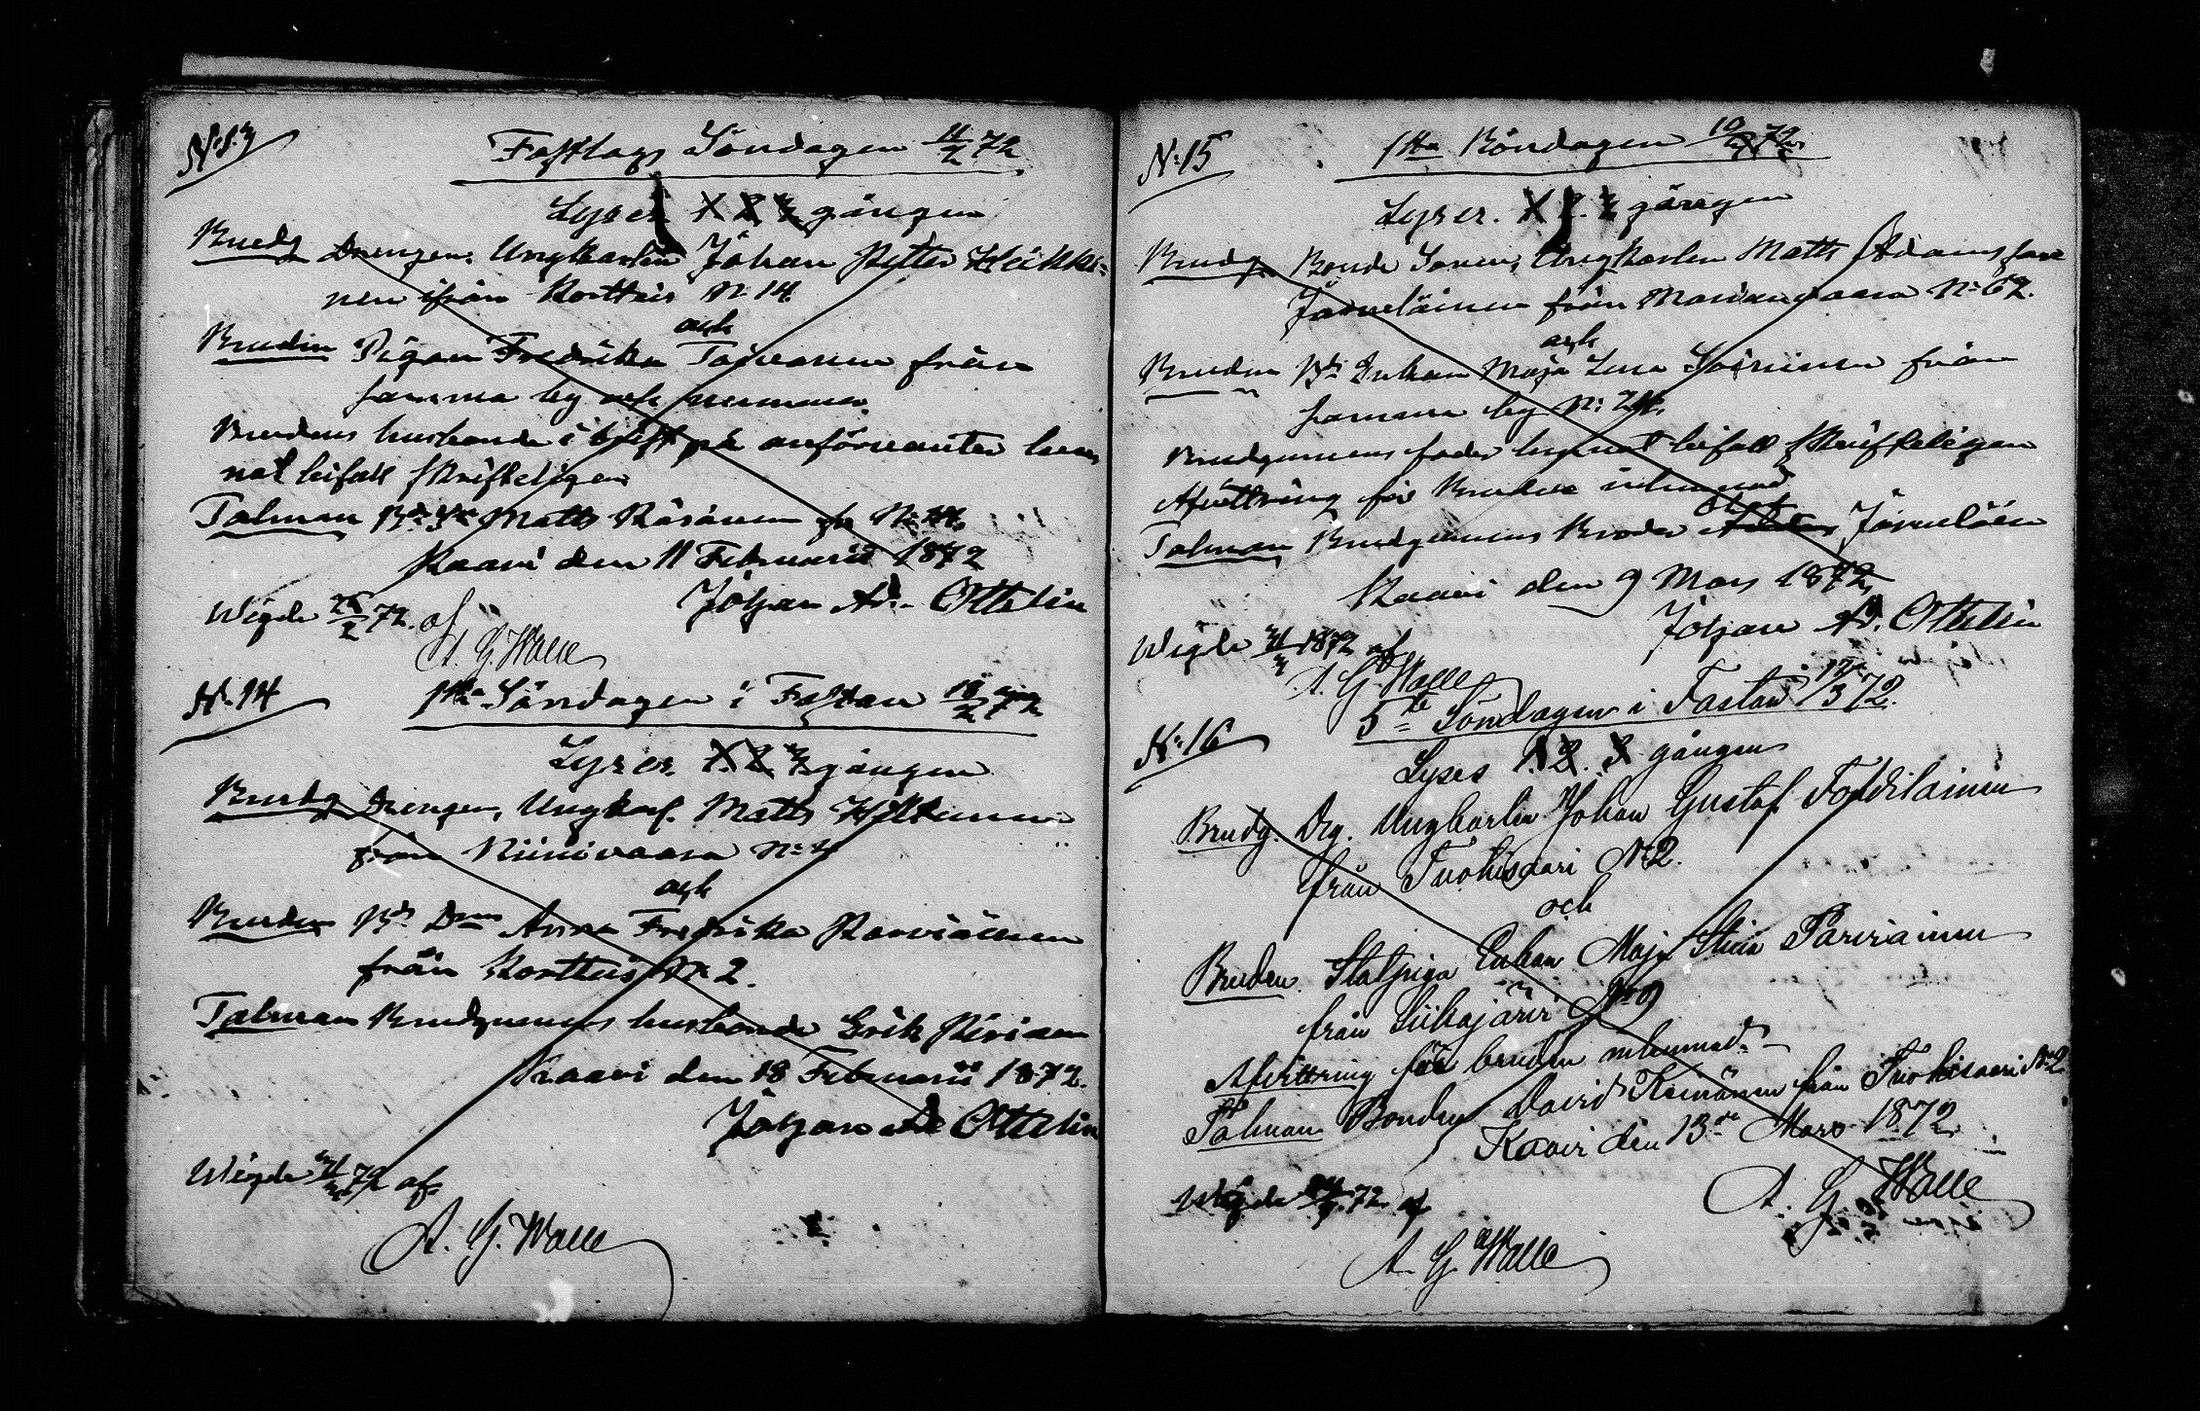 N:13
Fastlags Söndagen 11/2 72
Lyses 1 2 3 gången
Brudg Drengen, Ungkarlen Johan Petter Heikki-
nen ifrån Kortteis N 14
och
Bruden Pigan Fredrika Toivanen från
samma by och nummer.
Brudens husbonde i
nat bifall skrifteligen
Talman Matts Räsänen N: 14.
Kaavi den 11 Februarii 1872
Johan Ad. Ottelin
Wigde 26/2 72. af
A. G. Walle
N. 14
1sta Söndagen i Fastan 18/2 72
Lyses. 1. 2 3 gången
Brudg Drengen, Ungkarl. Matts
från Niinivaara N: 4
och
Bruden Bd Dr Anna Fredrika Raviainen
från Kortteis N 2.
Talman Brudgumens husbonde Erik
Kaavi den 18 Februarii 1872.
Johan Ad Ottelin
Wigde 72 af
A. G. Walle
N:15
1sta Böndagen 10/3 72.
Lyses. 1 2. 3 gången
Brudg. Bonde Sonen, Ungkarlen Matts Adamsson
från N: 62.
och
Bruden Bd Enkan Maja Lena Soininen från
samma by N: 24.
Brudgumens fader bifall skrifteligen
Afvittring för Bruden inlemnad
Talman Brudgumens Broder
Kaavi den 9 Mars 1872
Johan Ad. Ottelin
Wigde 1872 af
A. G Walle
N: 16
5te Söndagen i Fastan 17/3 72.
Lyses 1. 2. 3 gången
Brudg. Drg. Ungkarlen Johan Gustaf
från Tuohisaari No 2.
och
Bruden. Statpiga Enkan Maja Stina Parviainen
från Siikajärvi No 9
Afvittring för bruden inlemnad.
Talman Bonden David från Tuohisaari No 2
Kaavi den 13de Mars 1872
A. G. Walle
Wigde 72. af
A. G. Walle